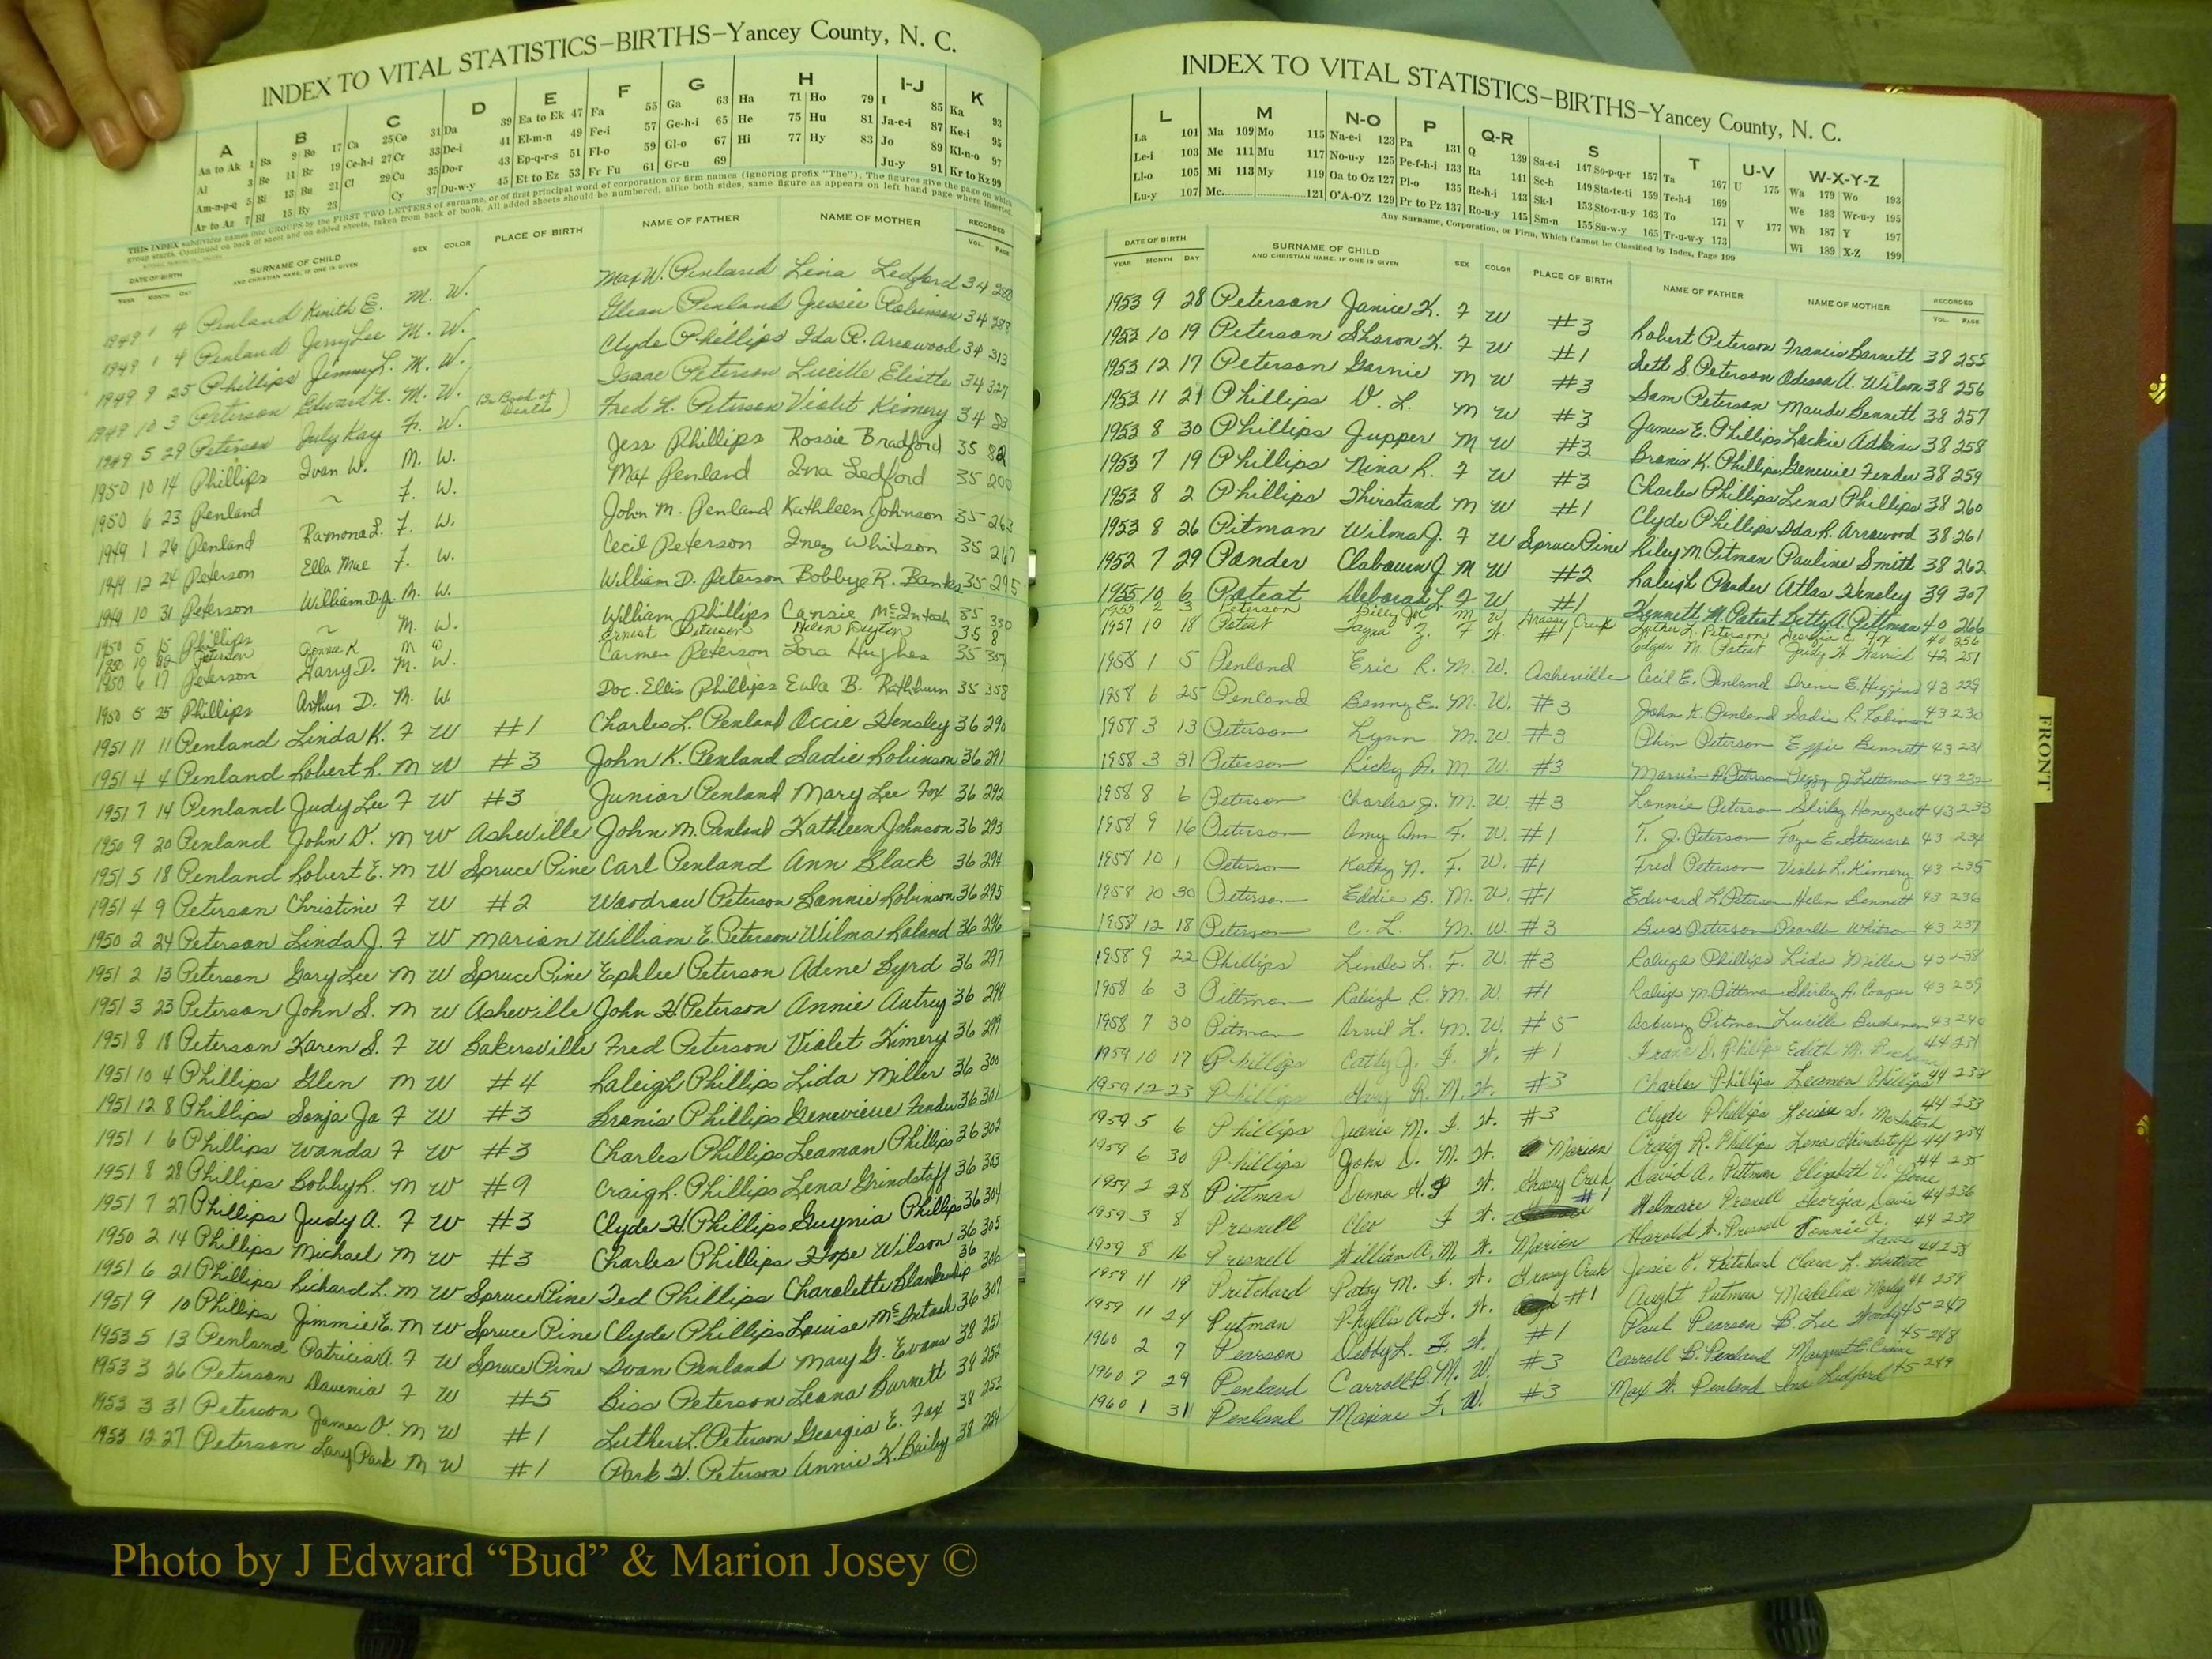 INDEX TO VITAL STATISTICS–BIRTHS–Yancey County, N. C.
A B C D E F G H I-J K
Aa to Ak 1 Ba 9 Bo 17 Ca 25 Co 31 Da 39 Ea to Ek 47 Fa 55 Ga 63 Ha 71 Ho 79 I 85 Ka 93
Al 3 Be 11 Br 19 Ce-h-i 27 Cr 33 De-i 41 El-m-n 49 Fe-i 57 Ge-h-i 65 He 75 Hu 81 Ja-e-i 87 Ke-i 95
Am-n-p-q 5 Bi 13 Bu 21 Cl 29 Cu 35 Do-r 43 Ep-q-r-s 51 Fl-o 59 Gl-o 67 Hi 77 Hy 83 Jo 89 Kl-n-o 97
Ar to Az 7 Bl 15 By 23 Cy 37 Du-w-y 45 Et to Ez 53 Fr Fu 61 Gr-u 69 Ju-y 91 Kr to Kz 99
THIS INDEX subdivides names into GROUPS by the FIRST TWO LETTERS of surname, or of first principal word of corporation or firm names (ignoring prefix "The"). The figures give the page on which
group starts. Continued on back of sheet and on added sheets, taken from back of book. All added sheets should be numbered, alike both sides, same figure as appears on left hand page where inserted.
DATE OF BIRTH SURNAME OF CHILD SEX COLOR PLACE OF BIRTH NAME OF FATHER NAME OF MOTHER RECORDED
YEAR MONTH DAY AND CHRISTIAN NAME, IF ONE IS GIVEN VOL. PAGE
1949 1 4 Penland Kenith E. M. W. Max W. Penland Lina Ledford 34
1949 1 4 Penland Jerry Lee M. W. Glean Penland Jessie Robinson 34
1949 9 25 Phillips Jimmy L. M. W. Clyde Phillips Ida R. Arrowood 34 313
1949 10 3 Peterson Edward H. M. W. Isaac Peterson Lucille 34 327
1949 5 29 Peterson July Kay F. W. (In Book of Deaths) Fred L. Peterson Violet Kimery 34 53
1950 10 14 Phillips Ivan W. M. W. Jess Phillips Rossie Bradford 35 82
1950 6 23 Penland ~ F. W. Max Penland Ina Ledford 35 200
1949 1 26 Penland Ramona L. F. W. John M. Penland Kathleen Johnson 35 263
1949 12 24 Peterson Ella Mae F. W. Cecil Peterson Inez Whitson 35 267
1949 10 31 Peterson William D. Jr. M. W. William D. Peterson Bobbye R. Banks 35 295
1950 5 15 Phillips ~ M. W. William Phillips Cansie McIntosh 35 350
1950 Peterson Ronnie K. M W Ernest Peterson Helen Deyton 35 8
1950 6 17 Peterson Harry D. M. W. Carmen Peterson Lora Hughes 35 357
1950 5 25 Phillips Arthur D. M. W. Doc. Ellis Phillips Eula B. Rathburn 35 358
1951 11 11 Penland Linda K. F W #1 Charles L. Penland Occie Hensley 36 290
1951 4 4 Penland Robert R. M W #3 John K. Penland Sadie Robinson 36 291
1951 7 14 Penland Judy Lee F W #3 Junior Penland Mary Lee Fox 36 292
1950 9 20 Penland John D. M W Asheville John M. Penland Kathleen Johnson 36 293
1951 5 18 Penland Robert E. M W Spruce Pine Carl Penland Ann Slack 36 294
1951 4 9 Peterson Christine F W #2 Woodrow Peterson Bonnie Robinson 36 295
1950 2 24 Peterson Linda J. F W Marion William E. Peterson Wilma Roland 36 296
1951 2 13 Peterson Gary Lee M W Spruce Pine Ephlee Peterson Adene Byrd 36 297
1951 3 23 Peterson John S. M W Asheville John H Peterson Annie Autrey 36 298
1951 8 18 Peterson Karen S. F W Bakersville Fred Peterson Violet Kimery 36 299
1951 10 4 Phillips Glen M W #4 Raleigh Phillips Lida Miller 36 300
1951 12 8 Phillips Sonja Jo F W #3 Branis Phillips Genevieve Fender 36 301
1951 1 6 Phillips Wanda F W #3 Charles Phillips Leaman Phillips 36 302
1951 8 28 Phillips Bobby R. M W #9 Craig R. Phillips Lena Grindstaff 36 303
1951 7 27 Phillips Judy A. F W #3 Clyde H. Phillips Guynia Phillips 36 304
1950 2 14 Phillips Michael M W #3 Charles Phillips Hope Wilson 36 305
1951 6 21 Phillips Richard L. M W Spruce Pine Ted Phillips Charolette Blankenship 36 306
1951 9 10 Phillips Jimmie E. M W Spruce Pine Clyde Phillips Louise McIntosh 36 307
1953 5 13 Penland Patricia A. F W Spruce Pine Ivan Penland Mary G. Evans 38 251
1953 3 26 Peterson Davenia F W #5 Biss Peterson Leona Barnett 38 252
1953 3 31 Peterson James O. M W #1 Luther L. Peterson Georgia E. Fox 38 253
1953 12 27 Peterson Lary Park M W #1 Park H. Peterson Annie K. Bailey 38 254
INDEX TO VITAL STATISTICS–BIRTHS–Yancey County, N. C.
L M N-O P Q-R S T U-V W-X-Y-Z
La 101 Ma 109 Mo 115 Na-e-i 123 Pa 131 Q 139 Sa-e-i 147 So-p-q-r 157 Ta 167 U 175 Wa 179 Wo 193
Le-i 103 Me 111 Mu 117 No-u-y 125 Pe-f-h-i 133 Ra 141 Sc-h 149 Sta-te-ti 159 Te-h-i 169 We 183 Wr-u-y 195
Ll-o 105 Mi 113 My 119 Oa to Oz 127 Pl-o 135 Re-h-i 143 Sk-l 153 Sto-r-u-y 163 To 171 V 177 Wh 187 Y 197
Lu-y 107 Mc. 121 O'A-O'Z 129 Pr to Pz 137 Ro-u-y 145 Sm-n 155 Su-w-y 165 Tr-u-w-y 173 Wi 189 X-Z 199
Any Surname, Corporation, or Firm, Which Cannot be Classified by Index, Page 199
DATE OF BIRTH SURNAME OF CHILD SEX COLOR PLACE OF BIRTH NAME OF FATHER NAME OF MOTHER RECORDED
YEAR MONTH DAY AND CHRISTIAN NAME, IF ONE IS GIVEN VOL. PAGE
1953 9 28 Peterson Janice K. F W #3 Robert Peterson Francis Barnett 38 255
1953 10 19 Peterson Sharon K. F W #1 Seth S Peterson Odessa A. Wilson 38 256
1953 12 17 Peterson Garnie M W #3 Sam Peterson Maude Bennett 38 257
1953 11 21 Phillips D. L. M W #3 James E. Phillips Lockie Adkins 38 258
1953 8 30 Phillips Jupper M W #3 Branis K. Phillips Genevie Fender 38 259
1953 7 19 Phillips Nina R. F W #3 Charles Phillips Lena Phillips 38 260
1953 8 2 Phillips Thirstand M W #1 Clyde Phillips Ida R. Arrowood 38 261
1953 8 26 Pitman Wilma J. F W Spruce Pine Riley M. Pitman Pauline Smith 38 262
1952 7 29 Ponder Clabourn J. M W #2 Raleigh Ponder Atlas Hensley 39 307
1955 10 6 Poteat Deborah L. F W #1 Kennett M. Poteat Betty A. Pittman 40 266
1955 2 3 Peterson Billy Joe M W Grassy Creek Luther L. Peterson Georgia E. Fox 40 256
1957 10 18 Poteat Jayna Z. F W. #1 Edgar M. Poteat Judy H. 42 251
1958 1 5 Penland Eric R. M. W. Asheville Cecil E. Penland Irene E. Higgins 43 229
1958 6 25 Penland Benny E. M. W. #3 John K. Penland Sadie R. Robinson 43 230
1958 3 13 Peterson Lynn M. W. #3 Phin Peterson Effie Bennett 43 231
1958 3 31 Peterson Ricky A. M. W. #3 Marvin A. Peterson Peggy J. 43 232
1958 8 6 Peterson Charles J. M. W. #3 Lonnie Peterson Shirley Honeycutt 43 233
1958 9 16 Peterson Amy Ann F. W. #1 T. J. Peterson Faye E. Stewart 43 234
1958 10 1 Peterson Kathy N. F. W. #1 Fred Peterson Violet L. Kimery 43 235
1958 10 30 Peterson Eddie S. M. W. #1 Edward L. Peterson Helen Bennett 43 236
1958 12 18 Peterson C. L. M. W. #3 Guss Peterson Pearlle Whitson 43 237
1958 9 22 Phillips Linda L. F. W. #3 Raleigh Phillips Lida Miller 43 238
1958 6 3 Pittman Raleigh R. M. W. #1 Raleigh M. Pittman Shirley A. Cooper 43 239
1958 7 30 Pitman Arvil L. M. W. #5 Asbury Pitman Lucille Buchanan 43 240
1959 10 17 Phillips Cathy J. F. W. #1 Franc D. Phillips Edith M. 44 231
1959 12 23 Phillips R. M. W. #3 Charles Phillips Leamon Phillips 44 232
1959 5 6 Phillips Jeanie M. F. W. #3 Clyde Phillips Louise S. McIntosh 44 233
1959 6 30 Phillips John D. M. W. Marion Craig R. Phillips Lena Grindstaff 44 234
1959 2 28 Pittman Donna H. F W. Grassy Creek David A. Pittman Elizabeth V. Boone 44 235
1959 3 8 Presnell Cleo F W. #1 Helmare Presnell Georgia Davis 44 236
1959 8 16 Presnell William A. M. W. Marion Harold H. Presnell Vonnie A. 44 237
1959 11 19 Pritchard Patsy M. F. W. Grassy Creek Jessie V. Pritchard Clara L. 44 238
1959 11 24 Putman Phyllis A. F. W. #1 Aught Putman Madeline 44 239
1960 2 7 Pearson Debby L. F. W. #1 Paul Pearson B. Lee Woody 45 247
1960 7 29 Penland Carroll B. M. W. #3 Carroll B. Penland Margaret E. Crane 45 248
1960 1 31 Penland Maxine F. W. #3 Max W. Penland Ina Ledford 45 249
FRONT
Photo by J Edward “Bud” & Marion Josey ©